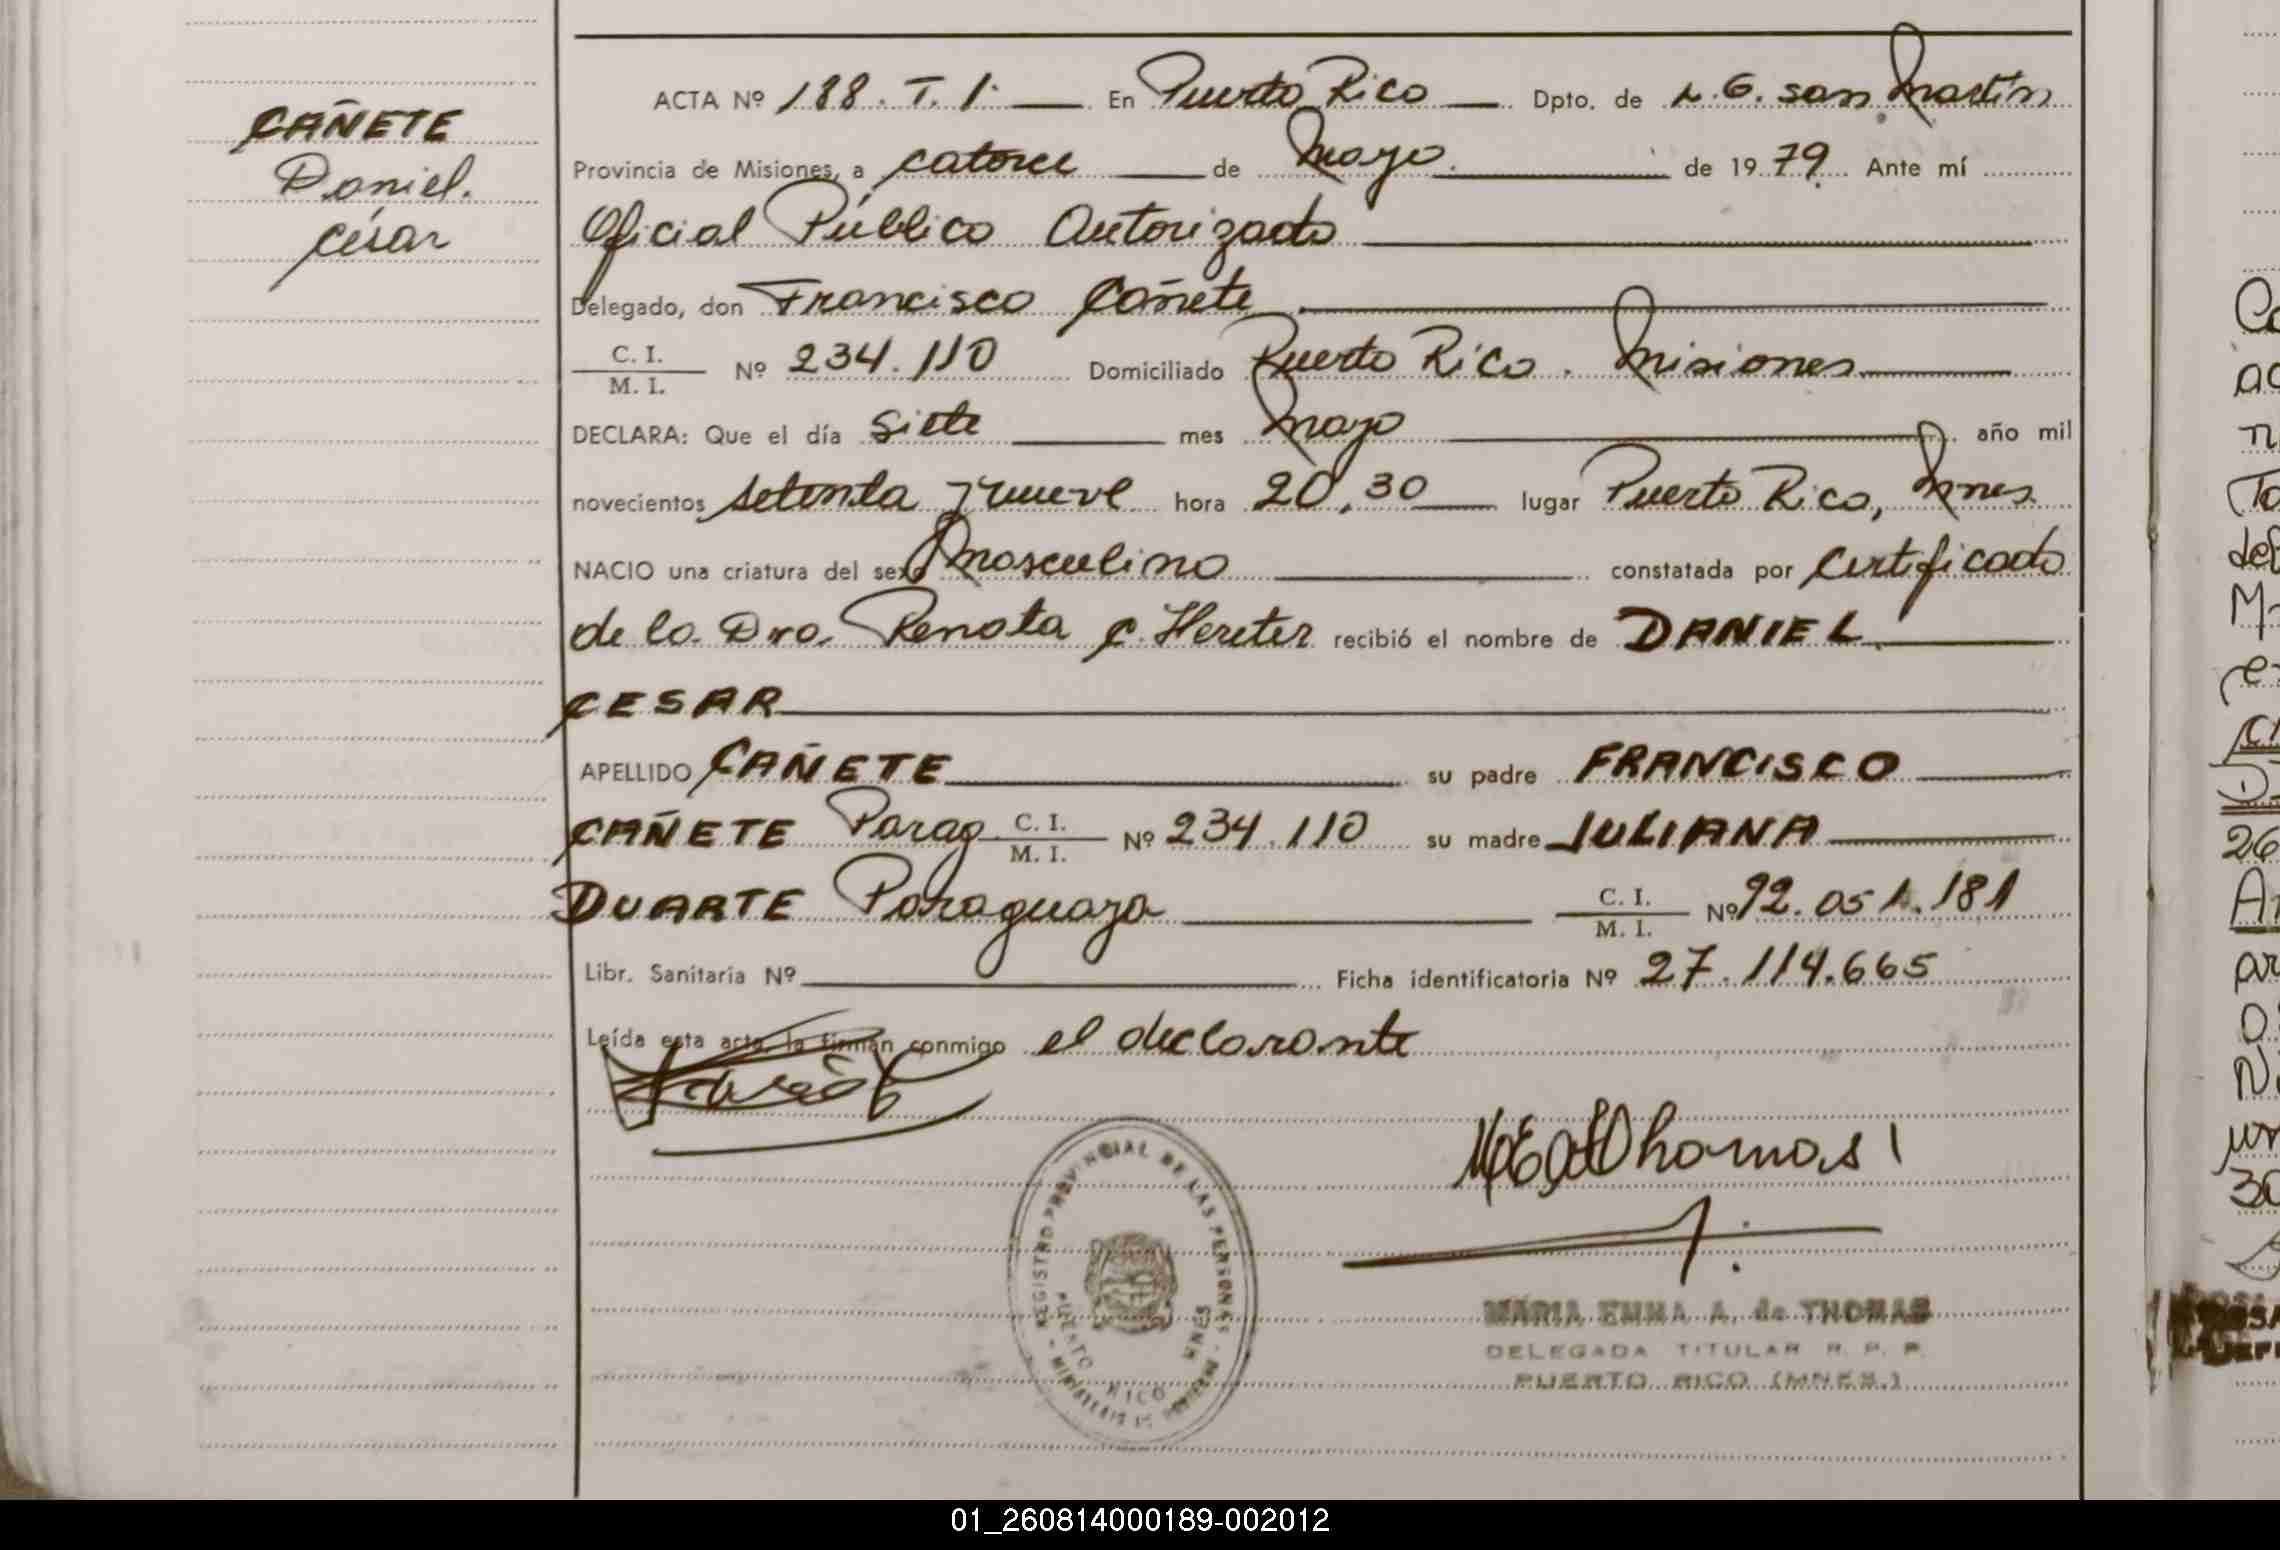 CAÑETE
Daniel.
César
ACTA Nº 188. T. 1. En Puerto Rico Dpto. de L. G. San Martín
Provincia de Misiones, a catorce de Mayo. de 1979. Ante mí
Oficial Público Autorizado
Delegado, don Francisco Cañete
C. I.
M. I. Nº 234.110 Domiciliado Puerto Rico. Misiones
DECLARA: Que el día siete mes Mayo año mil
novecientos setenta y nueve hora 20,30 lugar Puerto Rico, Mnes.
NACIO una criatura del sexo Masculino constatada por certificado
de la Dra. Renata C. Hereter recibió el nombre de DANIEL
CESAR
APELLIDO CAÑETE su padre FRANCISCO
CAÑETE Parag. C. I. M. I. Nº 234.110 su madre JULIANA
DUARTE Paraguaya C. I. M. I. Nº 92.051.181
Libr. Sanitaria Nº Ficha identificatoria Nº 27.114.665
Leída esta acta, la firman conmigo el declarante
REGISTRO PROVINCIAL DE LAS PERSONAS
PUERTO RICO MNES
MARIA EMMA A. de THOMAS
DELEGADA TITULAR R. P. P.
PUERTO RICO (MNES.)
01_260814000189-002012